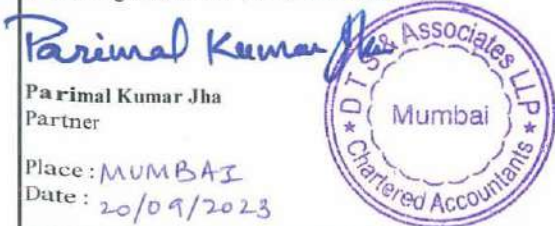 Parimal Kumar Jha
Parimal Kumar Jha
Partner
Place : MUMBAI
Date : 20/09/2023
D T S & Associates LLP
Mumbai
★ Chartered Accountants ★